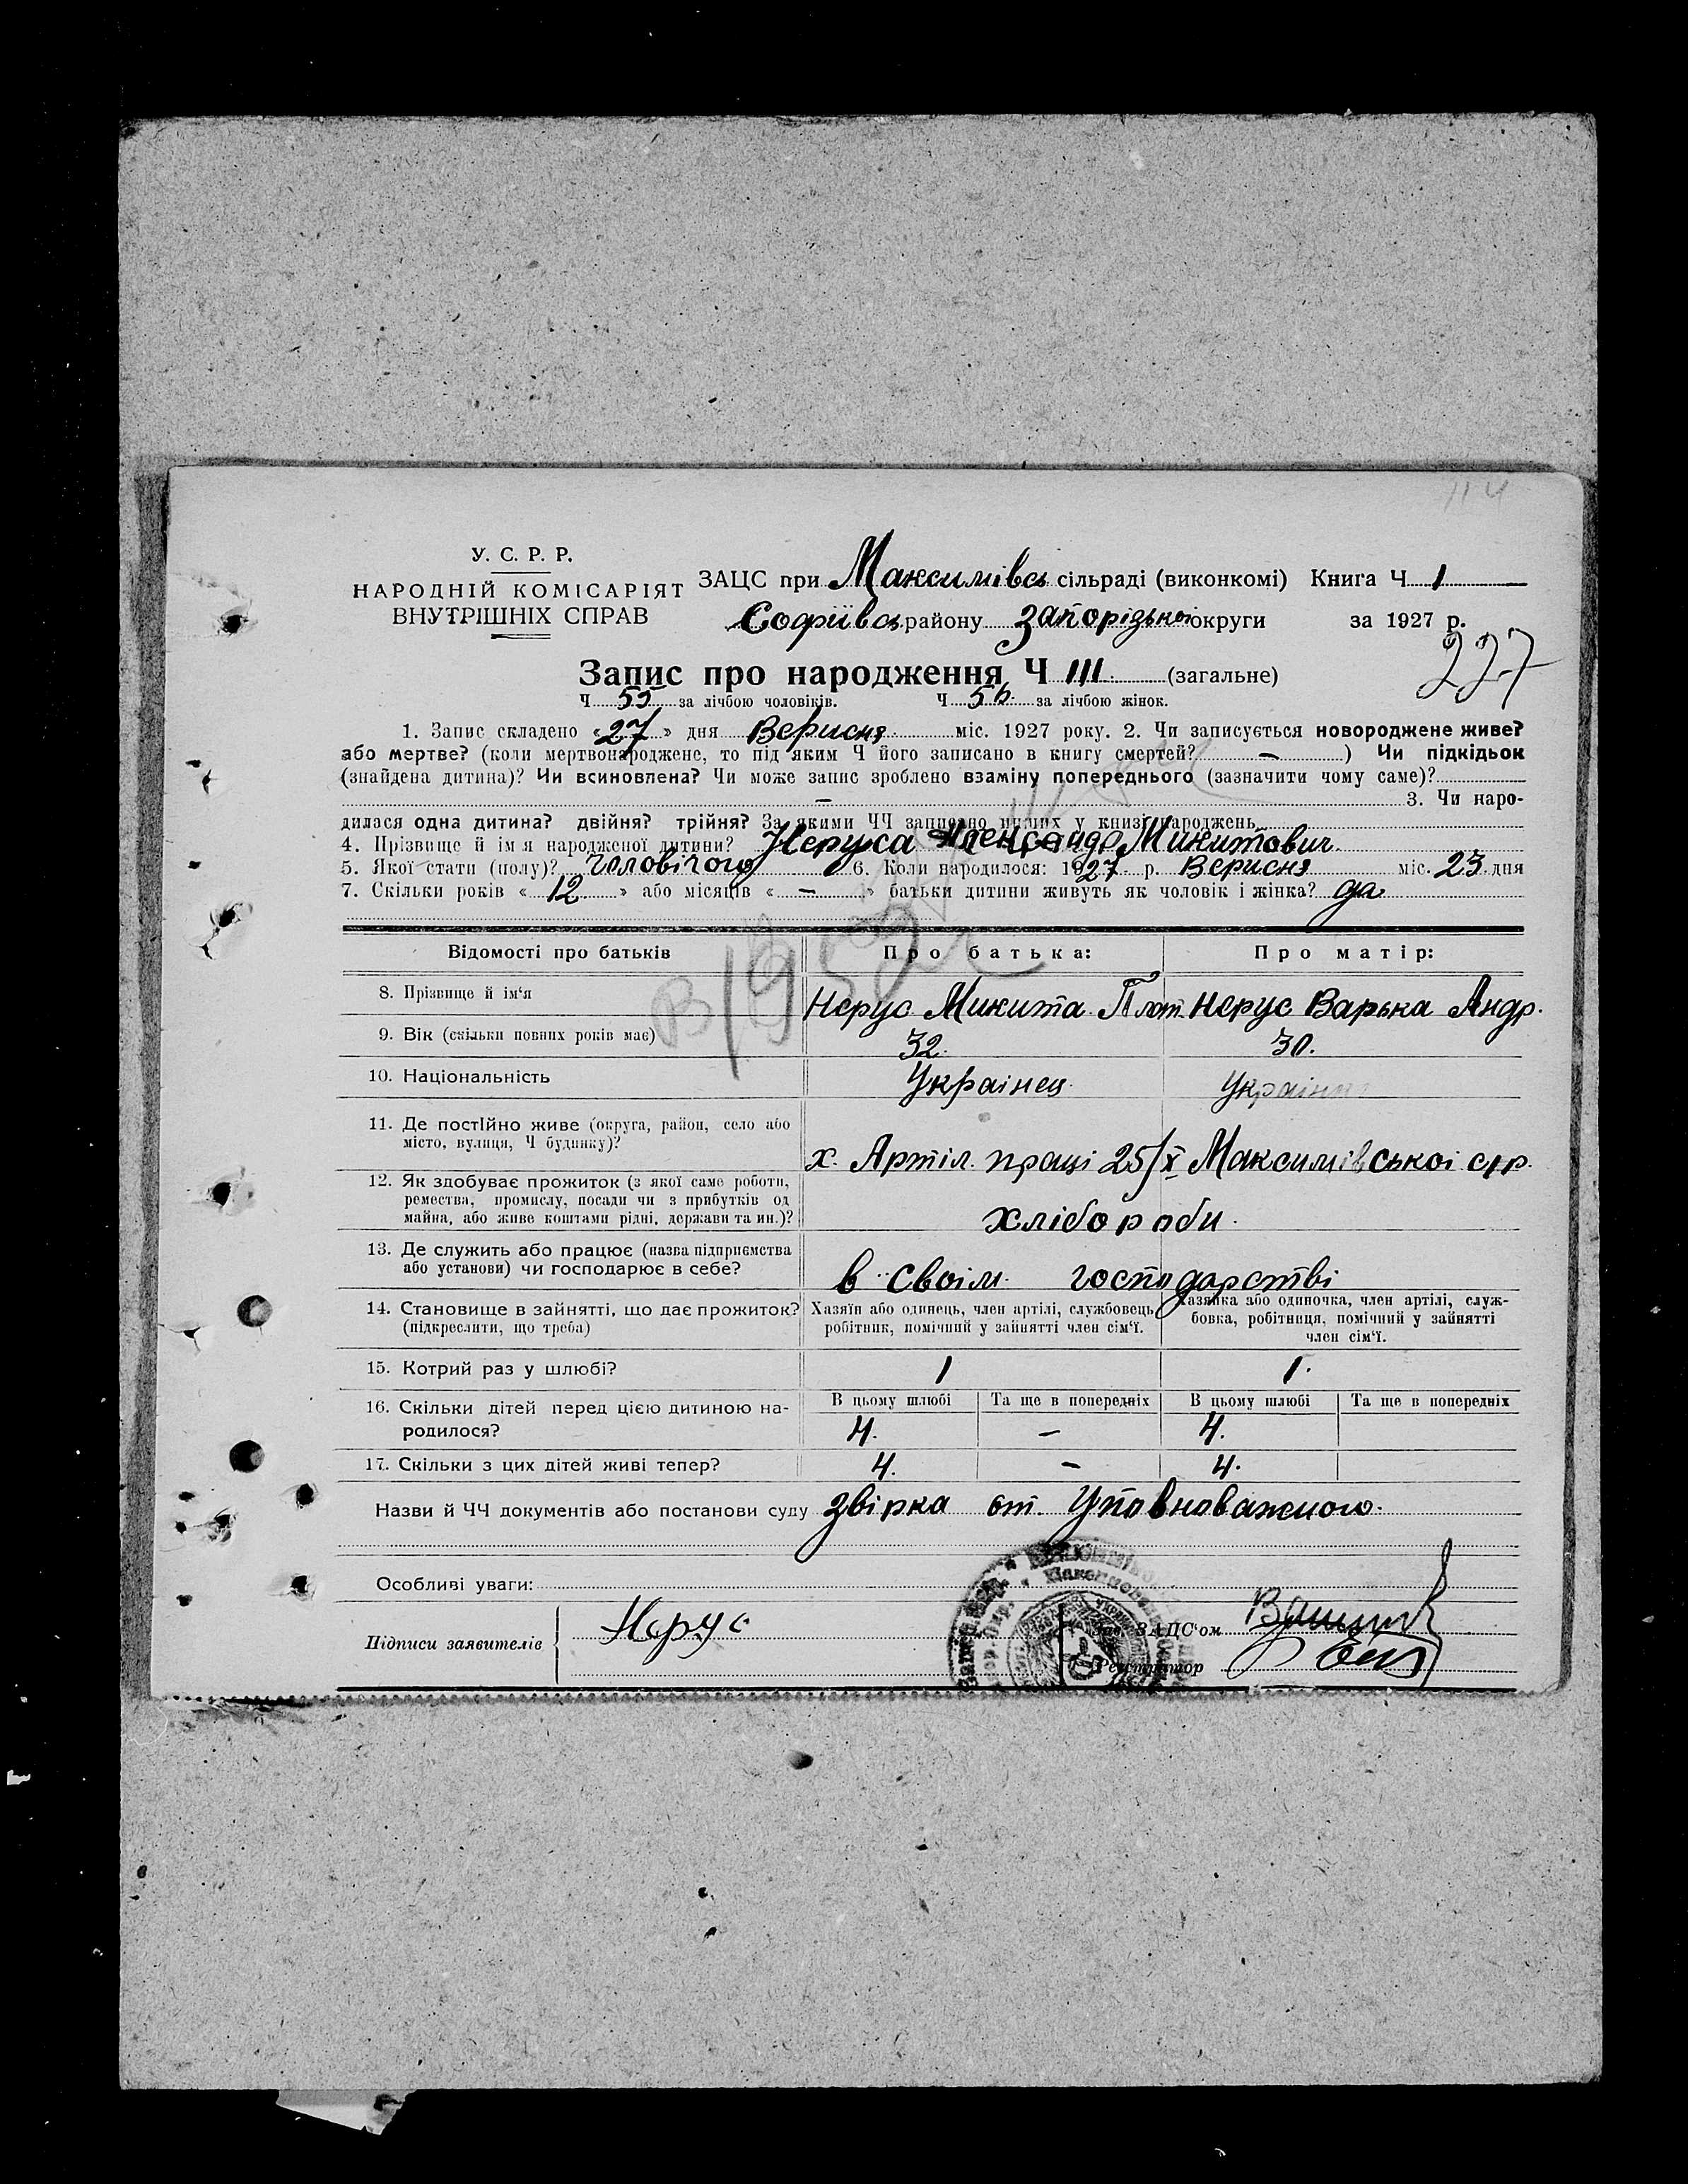 114
У. С. Р. Р.
НАРОДНІЙ КОМІСАРІЯТ
ВНУТРІШНІХ СПРАВ
ЗАЦС при Максимівсь сільраді (виконкомі) Книга Ч 1
Софіївсь району Запорізької округи за 1927 р.
227
Запис про народження Ч 111. (загальне)
Ч 55 за лічбою чоловіків. Ч 56. за лічбою жінок.
1. Запис складено «27» дня Вересня міс. 1927 року. 2. Чи записується новороджене живе?
або мертве? (коли мертвонароджене, то під яким Ч його записано в книгу смертей? — ) Чи підкідьок
(знайдена дитина)? Чи всиновлена? Чи може запис зроблено взаміну попереднього (зазначити чому саме)?
— 3. Чи наро-
дилася одна дитина? двійня? трійня? За якими ЧЧ записано инших у книзі народжень
4. Прізвище й ім'я народженої дитини? Неруса Александр Микитович
5. Якої стати (полу)? чоловічого 6. Коли народилося: 1927 р. Вересня міс. 23 дня
7. Скільки років « 12 » або місяців « — » батьки дитини живуть як чоловік і жінка? да
Відомості про батьків Про батька: Про матір:
8. Прізвище й ім'я Нерус Микита Плат. Нерус Варька Андр.
9. Вік (скільки повних років має) 32. 30.
10. Національність Украінец Украінка
11. Де постійно живе (округа, район, село або
місто, вулиця, Ч будинку)? х. Артіл. праці 25/X Максимівської с/р.
12. Як здобуває прожиток (з якої саме роботи,
ремества, промислу, посади чи з прибутків од
майна, або живе коштами рідні, держави та ин.)? хлібороби.
13. Де служить або працює (назва підприємства
або установи) чи господарює в себе? в своім господарстві
14. Становище в зайнятті, що дає прожиток? Хазяїн або одинець, член артілі, службовець, Хазяйка або одиночка, член артілі, служ-
(підкреслити, що треба) робітник, помічний у зайнятті член сім'ї. бовка, робітниця, помічний у зайнятті
член сім'ї.
15. Котрий раз у шлюбі? 1 1.
16. Скільки дітей перед цією дитиною на- В цьому шлюбі Та ще в попередніх В цьому шлюбі Та ще в попередніх
родилося? 4. — 4.
17. Скільки з цих дітей живі тепер? 4. — 4.
Назви й ЧЧ документів або постанови суду звірка от Уповноважного.
Особливі уваги:
Підписи заявителів Нерус Зав. ЗАЦС'ом
Реєстратор